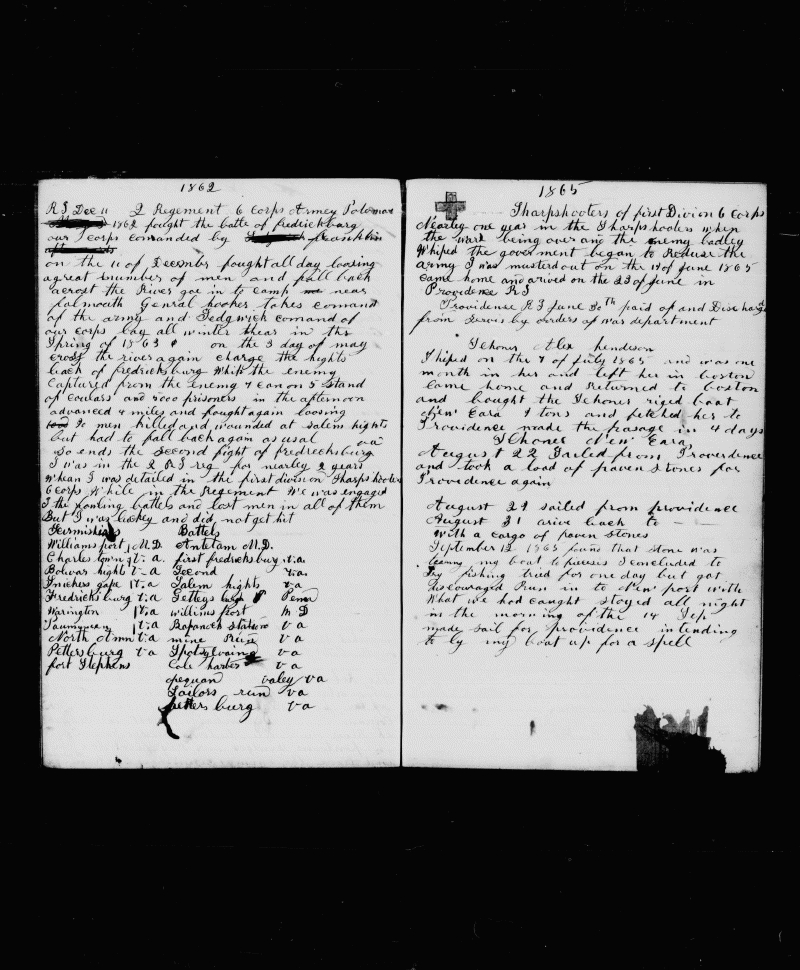 1862
R I Dec 11 2 Regement 6 Corps Armey Potomac
1862 fought the battle of fredricksburg
our Corps comanded by freanklin
on the 11 of Decembr fought all day loosing
a great number of men and fall back
acrost the River goe in to camp near
falmouth Genral hooker takes comand
of the army and Sedgwick comand of
our corps lay all winter thear in ths
Spring of 1863 on the 3 day of may
crost the river again charge the hights
back of fredricksburg Whip the enemy
Captured from the enemy 7 Canon 5 stand
of coulars and 4000 prisoners in the afternoon
advanced 4 miles and fought again loosing
80 men killed and wounded at salem hights
but had to fall back again as usal
va
so ends the Second fight of fredricksburg
I was in the 2 R I reg for nearley 2 years
Whean I was detailed in the first division Sharpshooters
6 Corps While in the Regement We was engaged
I the folowing battels and lost men in all of them
But I was luckey and did not get hit
Skirmishes Battels
Williams port M.D. Antetam M.D.
Charles town v. a. first fredricksburg v. a.
Bolivar hights v. a Second v.a.
Snickers gape v. a Salem hights v a
Fredricksburg v. a Gettys burg Penn
Warington v. a williams Port M D
v. a Rapanock station v a
North Anna v. a mine Run v a
Pettersburg v. a Spotsylvaina v a
fort Stephens Cole harbor v a
opequan valey v a
Sailors run v a
petters burg v a
1865
Sharpshooters of first Divion 6 Corps
Nearley one year in the Sharpshooters when
the ware being over and the enemy badley
Whiped the goverment began to Reduse the
army I was musterd out on the 19 of June 1865
Came home and arived on the 23 of June in
Providence R I
Providense R I June 30th paid of and Discharged
from servis by orders of war department
Schoner Alex hendeson
Shiped on the 7 of July 1865 and was one
month in her and left her in boston
Came home and Returned to boston
and bought the Schoner riged boat
Nen Cara 9 tons and fetched her to
Providence made the pasage in 4 days
Schoner Nen Cara
August 22 Sailed from Proverdence
and took a load of paven stones for
Providence again
August 29 sailed from providence
August 31 arive back to — —
with a cargo of paven stones
September 12 1865 found that stone was
my boat to pieeses I concluded to
try fishing tried for one day but got
discouraged Run in to New port with
What we had caught stayed all night
on the morning of the 14 Sep
made sail for providence intending
to ly my boat up for a spell